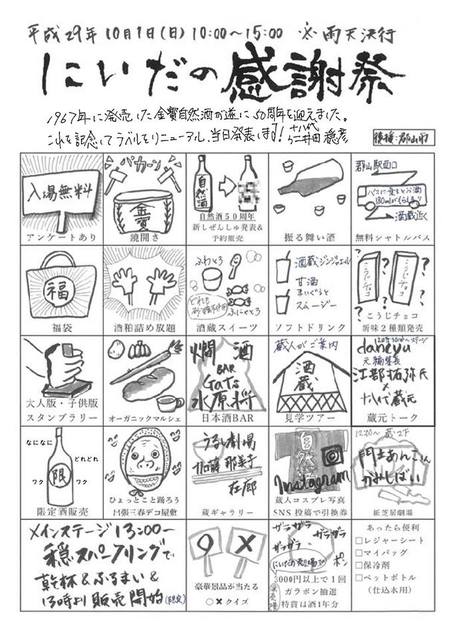 平成29年10月1日(日) 10:00〜15:00 ※雨天決行
にいだの感謝祭
1967年に発売した金寳自然酒が遂に50周年を迎えました。
これを記念してラベルをリニューアル、当日発表します! 十八代 仁井田穏彦
後援:郡山市
入場無料
アンケートあり
パカーン
金寳
鏡開き
自然酒
自然酒50周年
新しぜんしゅ発表&
予約販売
振る舞い酒
郡山駅西口
酒蔵近く
無料シャトルバス
福
福袋
酒粕詰め放題
ふわとろ
酒蔵スイーツ
酒蔵ジンジャエール
甘酒
スムージー
ソフトドリンク
こうじチョコ
新味2種類発売
大人版・子供版
スタンプラリー
オーガニックマルシェ
燗酒
BAR
Gats
水原将
日本酒BAR
蔵人がご案内
酒蔵
見学ツアー
dancyu
元編集長
江部拓弥氏
×
十八代蔵元
蔵元トーク
なになに
どれどれ
ワク
ワク
限
限定酒販売
ひょっとこと踊ろう
日張三春デコ屋敷
うるし劇場
加藤那美子
在廊
蔵ギャラリー
Instagram
蔵人コスプレ写真
SNS投稿で引換券
門まあんこくん
かみしばい
紙芝居劇場
メインステージ13:00〜
穏スパークリングで
乾杯&ふるまい&
13時より販売開始(限定)
○ ×
豪華景品が当たる
○×クイズ
ガラガラ
ガラガラ
ガラガラ
ポン
3000円以上で1回
ガラポン抽選
特賞は酒1年分
あったら便利
□レジャーシート
□マイバッグ
□保冷剤
□ペットボトル
(仕込水用)